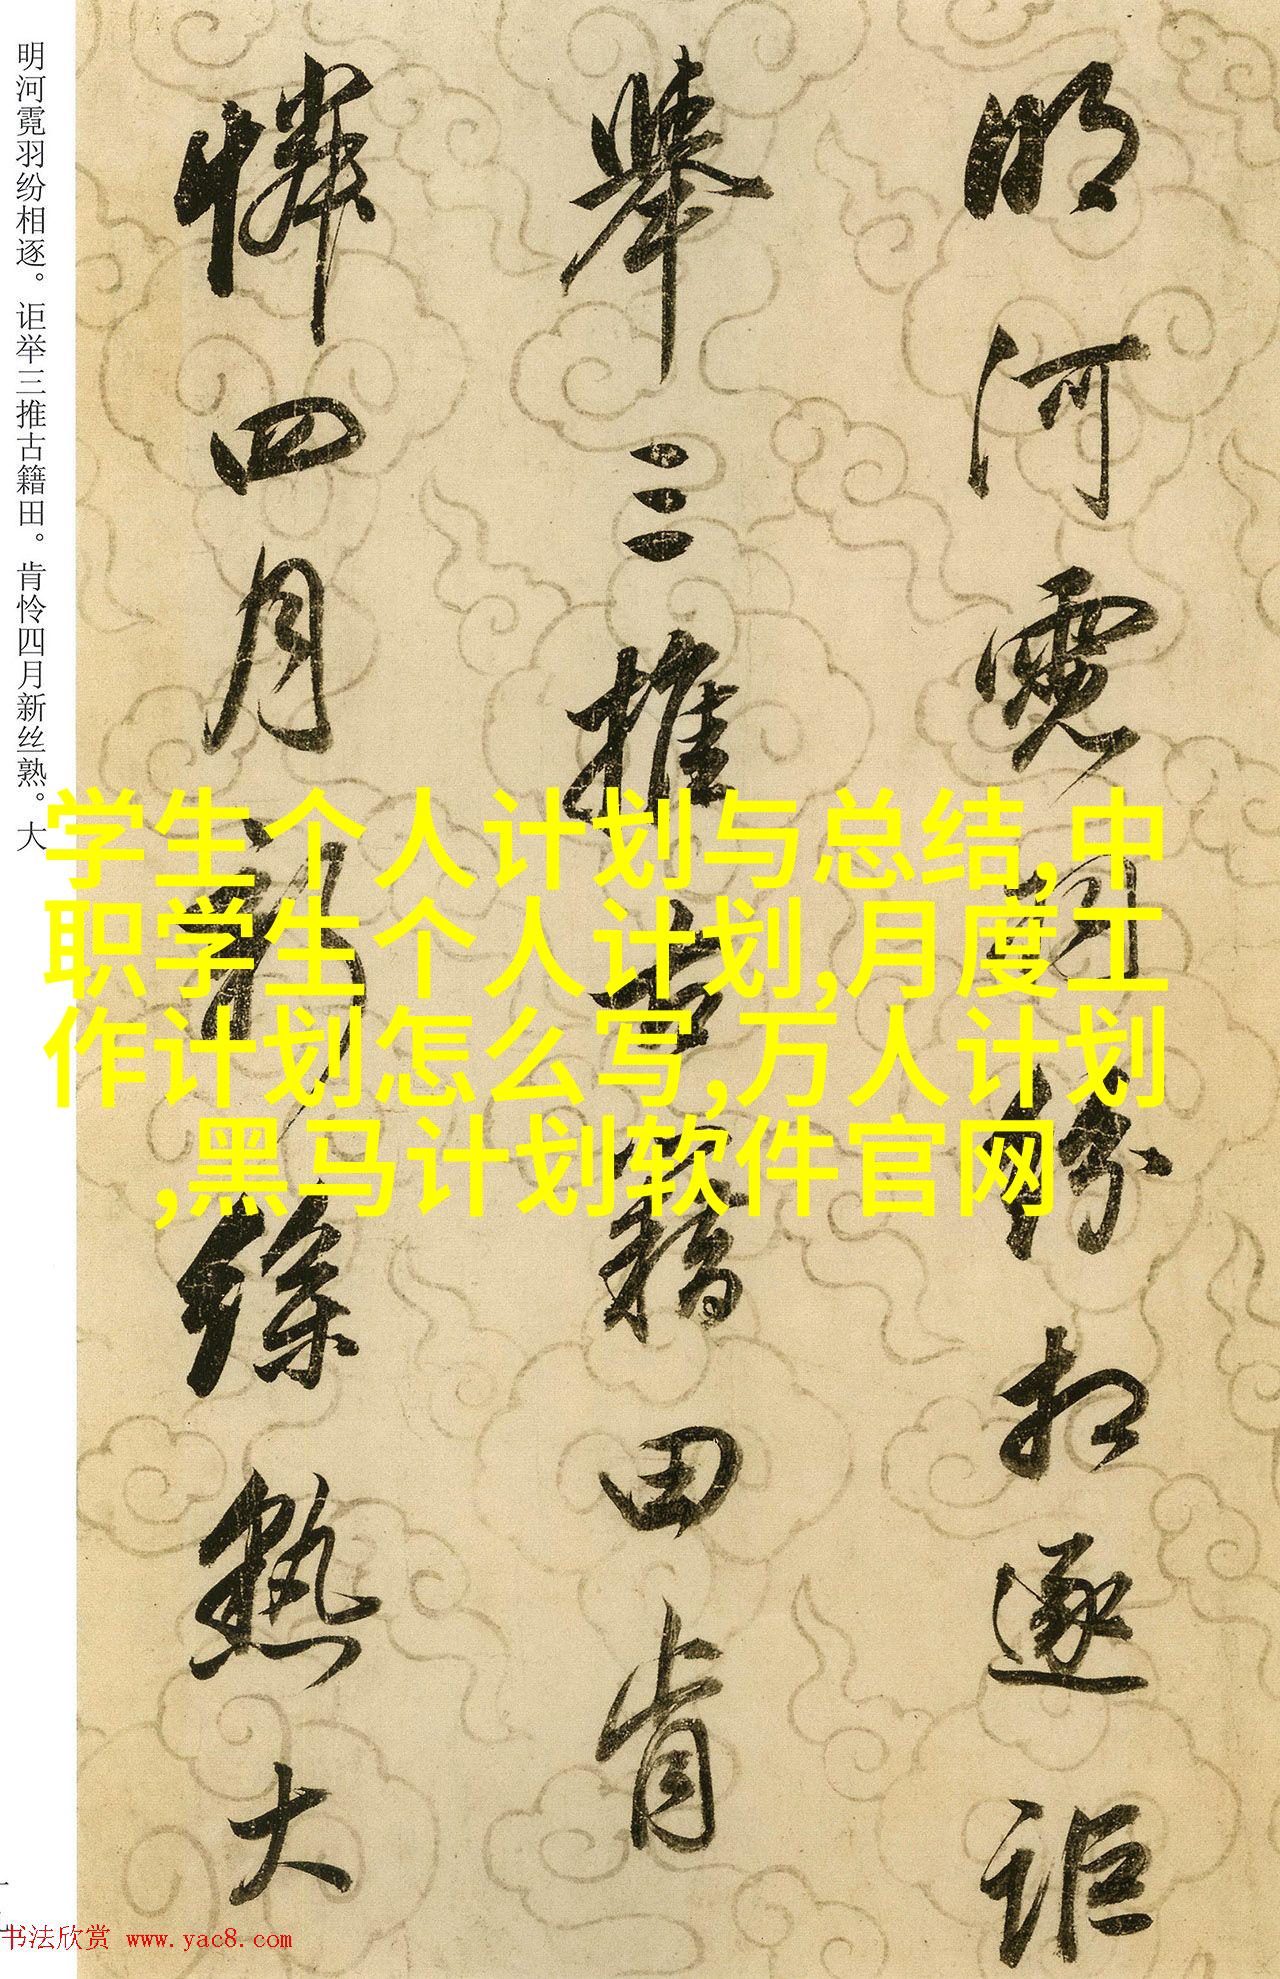 明河霓羽纷相逐。讵举三推古籍田。肯怜四月新丝熟。大
明河霓羽纷相逐讵
舉三推古籍田肯
憐四月新絲熟大
学生个人计划与总结,中
职学生个人计划,月度工
作计划怎么写,万人计划
,黑马计划软件官网
书法欣赏 www.yac8.com